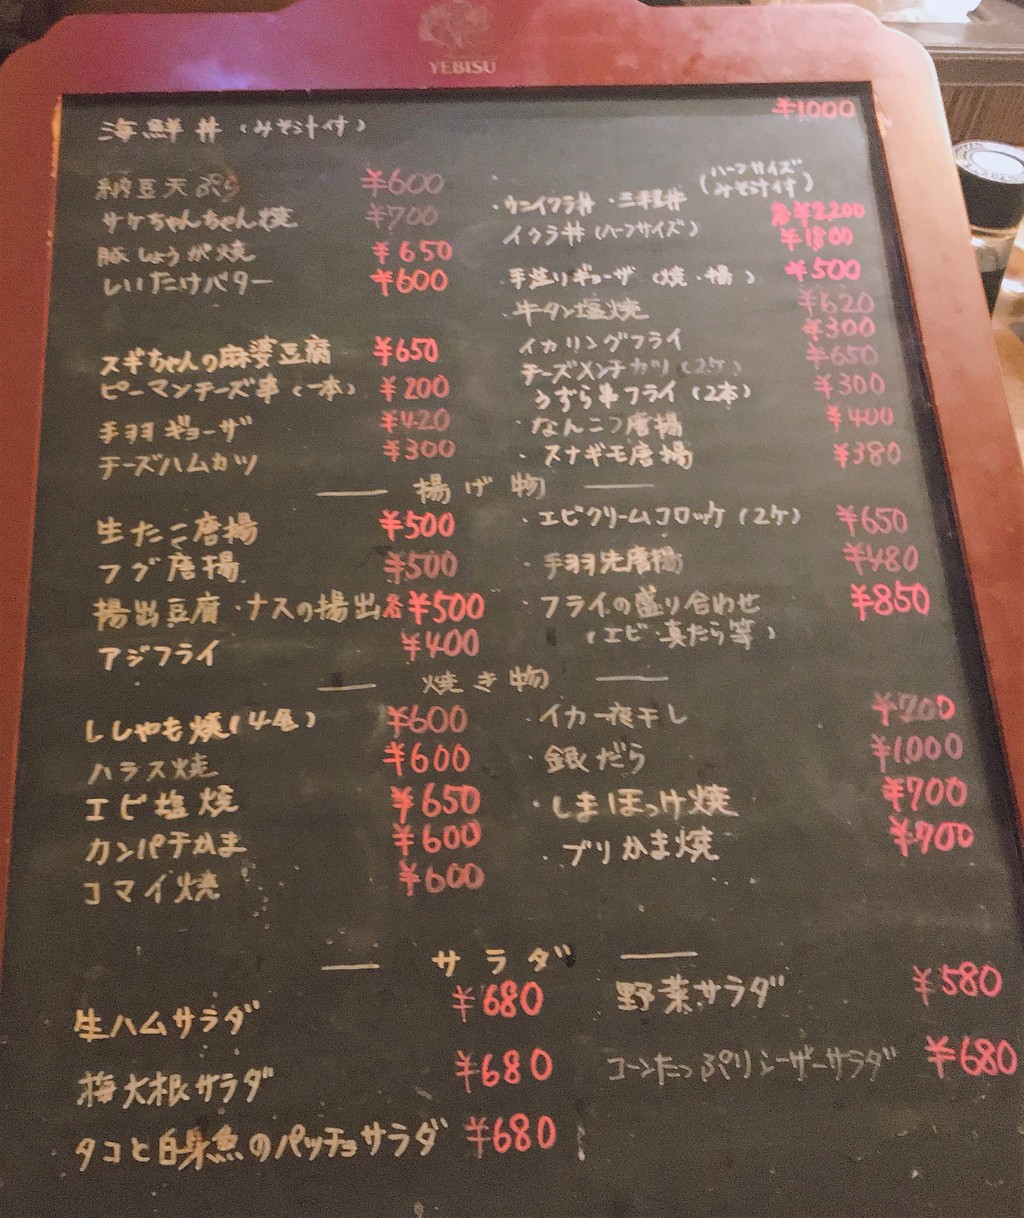 YEBISU
海鮮丼(みそ汁付) ¥1000
納豆天ぷら ¥600
サケちゃんちゃん焼 ¥700
豚しょうが焼 ¥650
しいたけバター ¥600
スギちゃんの麻婆豆腐 ¥650
ピーマンチーズ串(一本) ¥200
手羽ギョーザ ¥420
チーズハムカツ ¥300
ハーフサイズ
(みそ汁付)
・ウニイクラ丼・三手丼 各¥2,200
イクラ丼(ハーフサイズ) ¥1800
・手造りギョーザ(焼・揚) ¥500
・牛タン塩焼 ¥620
・イカリングフライ ¥300
チーズメンチカツ(2ケ) ¥650
うずら串フライ(2本) ¥300
・なんこつ唐揚 ¥400
・スナギモ唐揚 ¥380
揚げ物
生たこ唐揚 ¥500
フグ唐揚 ¥500
揚出豆腐・ナスの揚出 各¥500
アジフライ ¥400
・エビクリームコロッケ(2ケ) ¥650
・手羽先唐揚 ¥480
・フライの盛り合わせ ¥850
(エビ・真たら等)
焼き物
ししゃも焼(4尾) ¥600
ハラス焼 ¥600
エビ塩焼 ¥650
カンパチかま ¥600
コマイ焼 ¥600
・イカ一夜干し ¥700
・銀だら ¥1,000
・しまほっけ焼 ¥700
・ブリかま焼 ¥700
サラダ
生ハムサラダ ¥680
梅大根サラダ ¥680
タコと白身魚のパッチョサラダ ¥680
野菜サラダ ¥580
コーンたっぷりシーザーサラダ ¥680